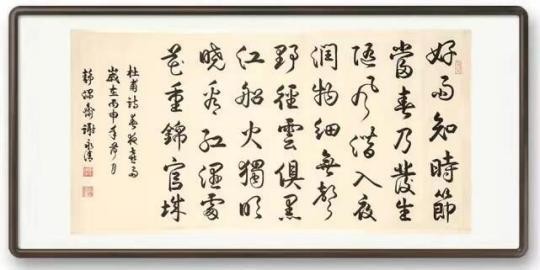 好雨知時節
當春乃發生
隨風潛入夜
潤物細無聲
野徑雲俱黑
江船火獨明
曉看紅濕處
花重錦官城
杜甫詩春夜喜雨
歲在丙申年月
靜齋謝永